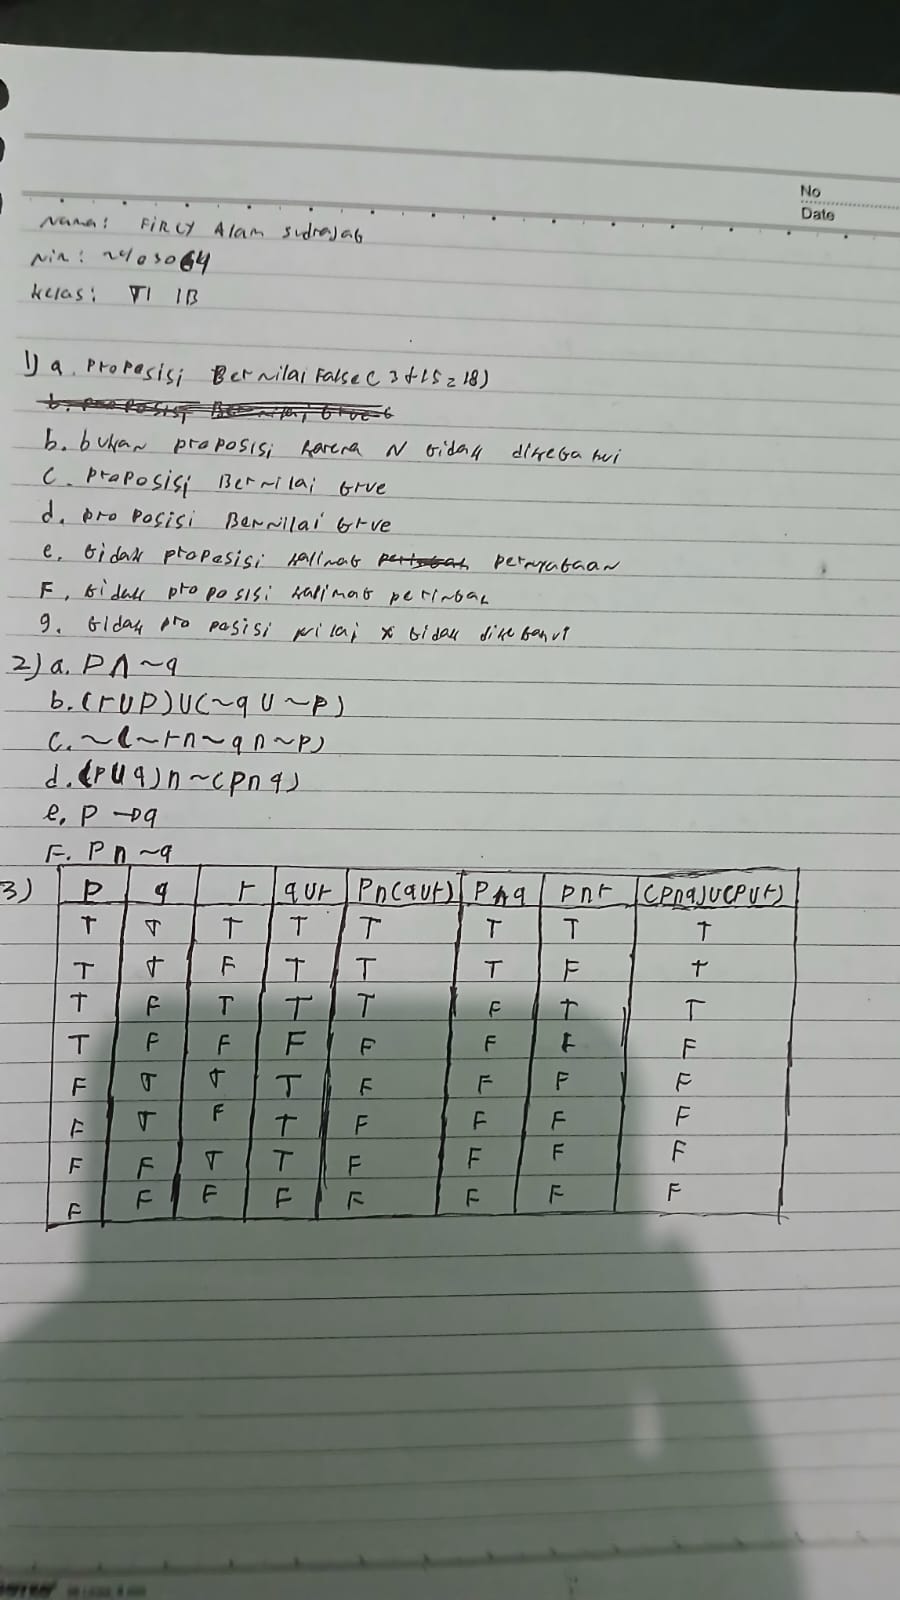 No
Date
Nama: FIRLY Alam sudrajat
Nim: 2403064
kelas: TI 1B
1) a. Proposisi Bernilai False ( 3+15 = 18)
b. bukan proposisi karena N tidak diketahui
c. proposisi Bernilai true
d. proposisi Bernilai true
e. tidak proposisi kalimat pernyataan
F. tidak proposisi kalimat perintah
g. tidak proposisi nilai x tidak diketahui
2) a. P ∧ ~q
b. (r ∪ p) ∪ (~q ∪ ~p)
c. ~(~r ∩ ~q ∩ ~p)
d. (p ∪ q) ∩ ~(p ∩ q)
e. P → q
F. P ∩ ~q
3) P q r q∪r P∩(q∪r) P∧q P∩r (P∩q)∪(P∪r)
T T T T T T T T
T T F T T T F T
T F T T T F T T
T F F F F F F F
F T T T F F F F
F T F T F F F F
F F T T F F F F
F F F F F F F F